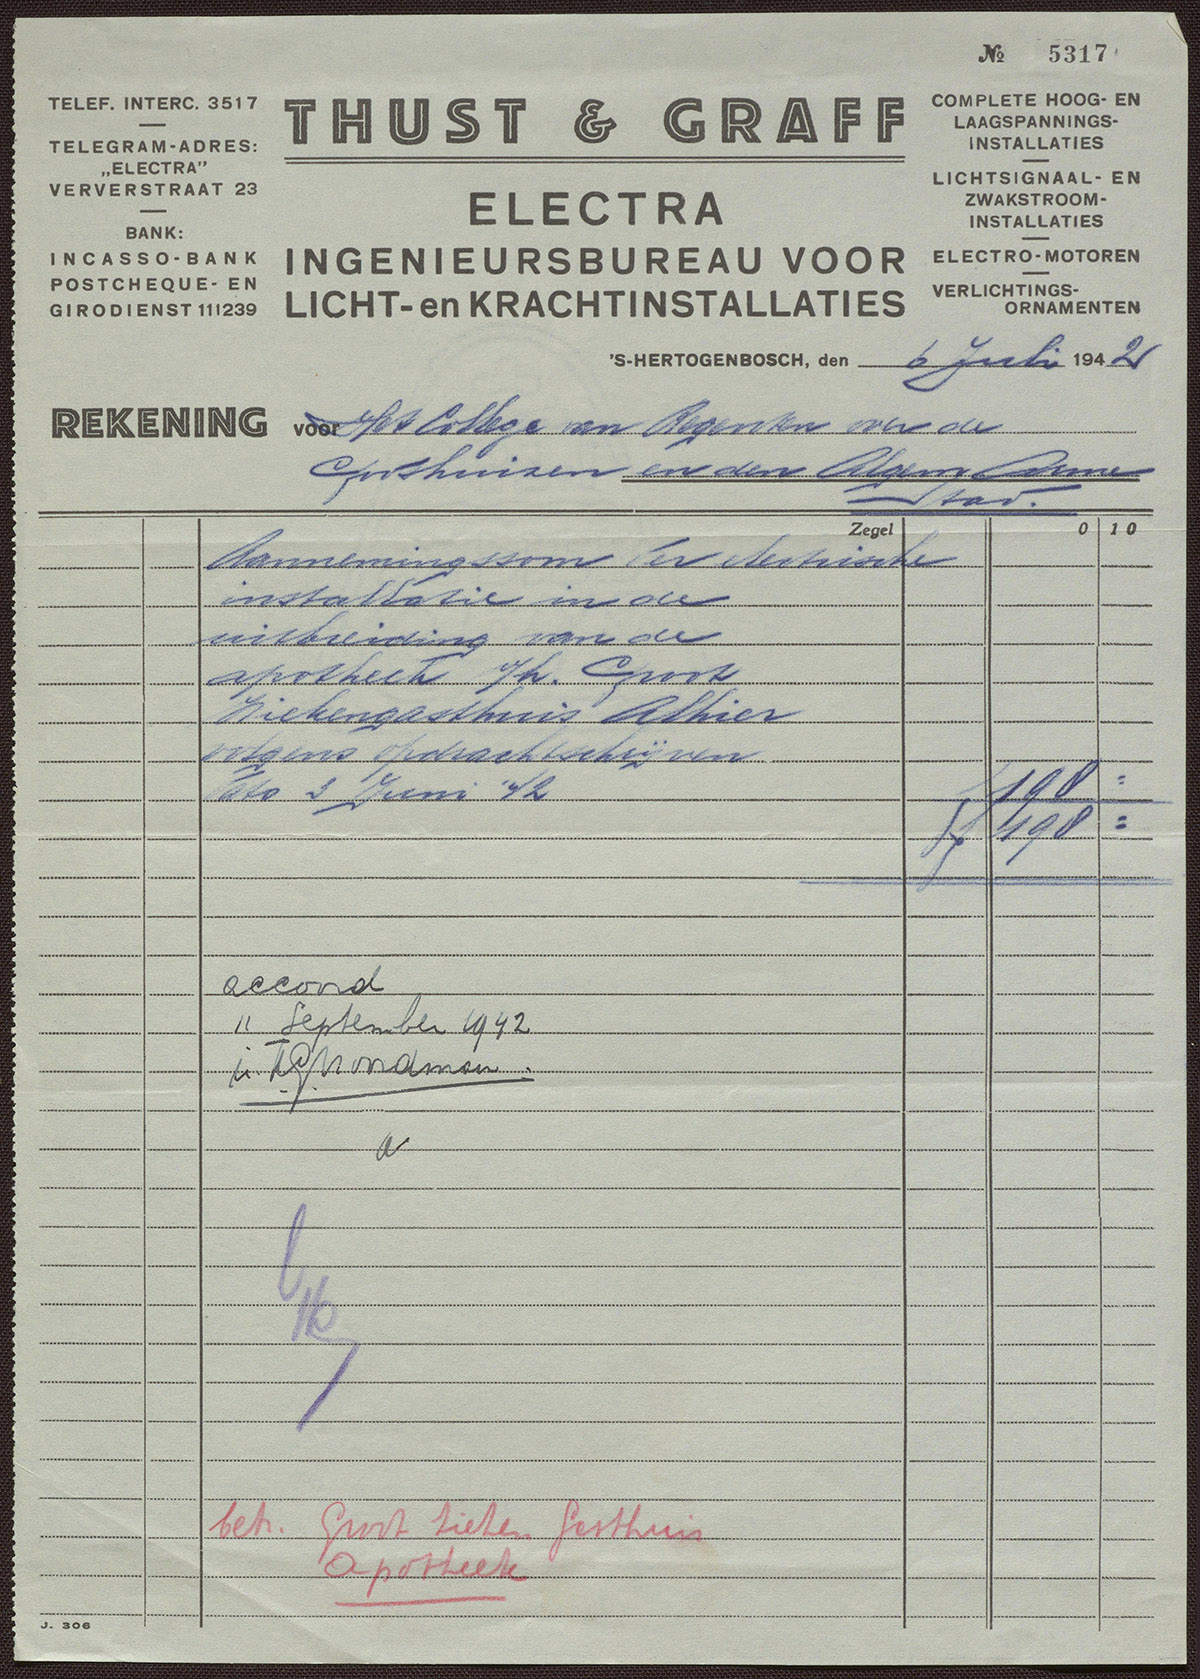 № 5317
TELEF. INTERC. 3517
TELEGRAM-ADRES:
„ELECTRA”
VERVERSTRAAT 23
BANK:
INCASSO-BANK
POSTCHEQUE- EN
GIRODIENST 111239
THUST & GRAFF
ELECTRA
INGENIEURSBUREAU VOOR
LICHT- en KRACHTINSTALLATIES
COMPLETE HOOG- EN
LAAGSPANNINGS-
INSTALLATIES
LICHTSIGNAAL- EN
ZWAKSTROOM-
INSTALLATIES
ELECTRO-MOTOREN
VERLICHTINGS-
ORNAMENTEN
'S-HERTOGENBOSCH, den 6 Juli 1942
REKENING voor Het College van Regenten over de
Godshuizen en den Algem. Arme
Stad.
Zegel 0 10
Aannemingssom der electrische
installatie in de
uitbreiding van de
apotheek v/h. Groot
Ziekengasthuis Alhier
volgens opdrachtschrijven
dato 3 Juni '42 198 =
f 198 =
accoord
11 September 1942
betr. Groot Zieken Gasthuis
Apotheek
J. 306